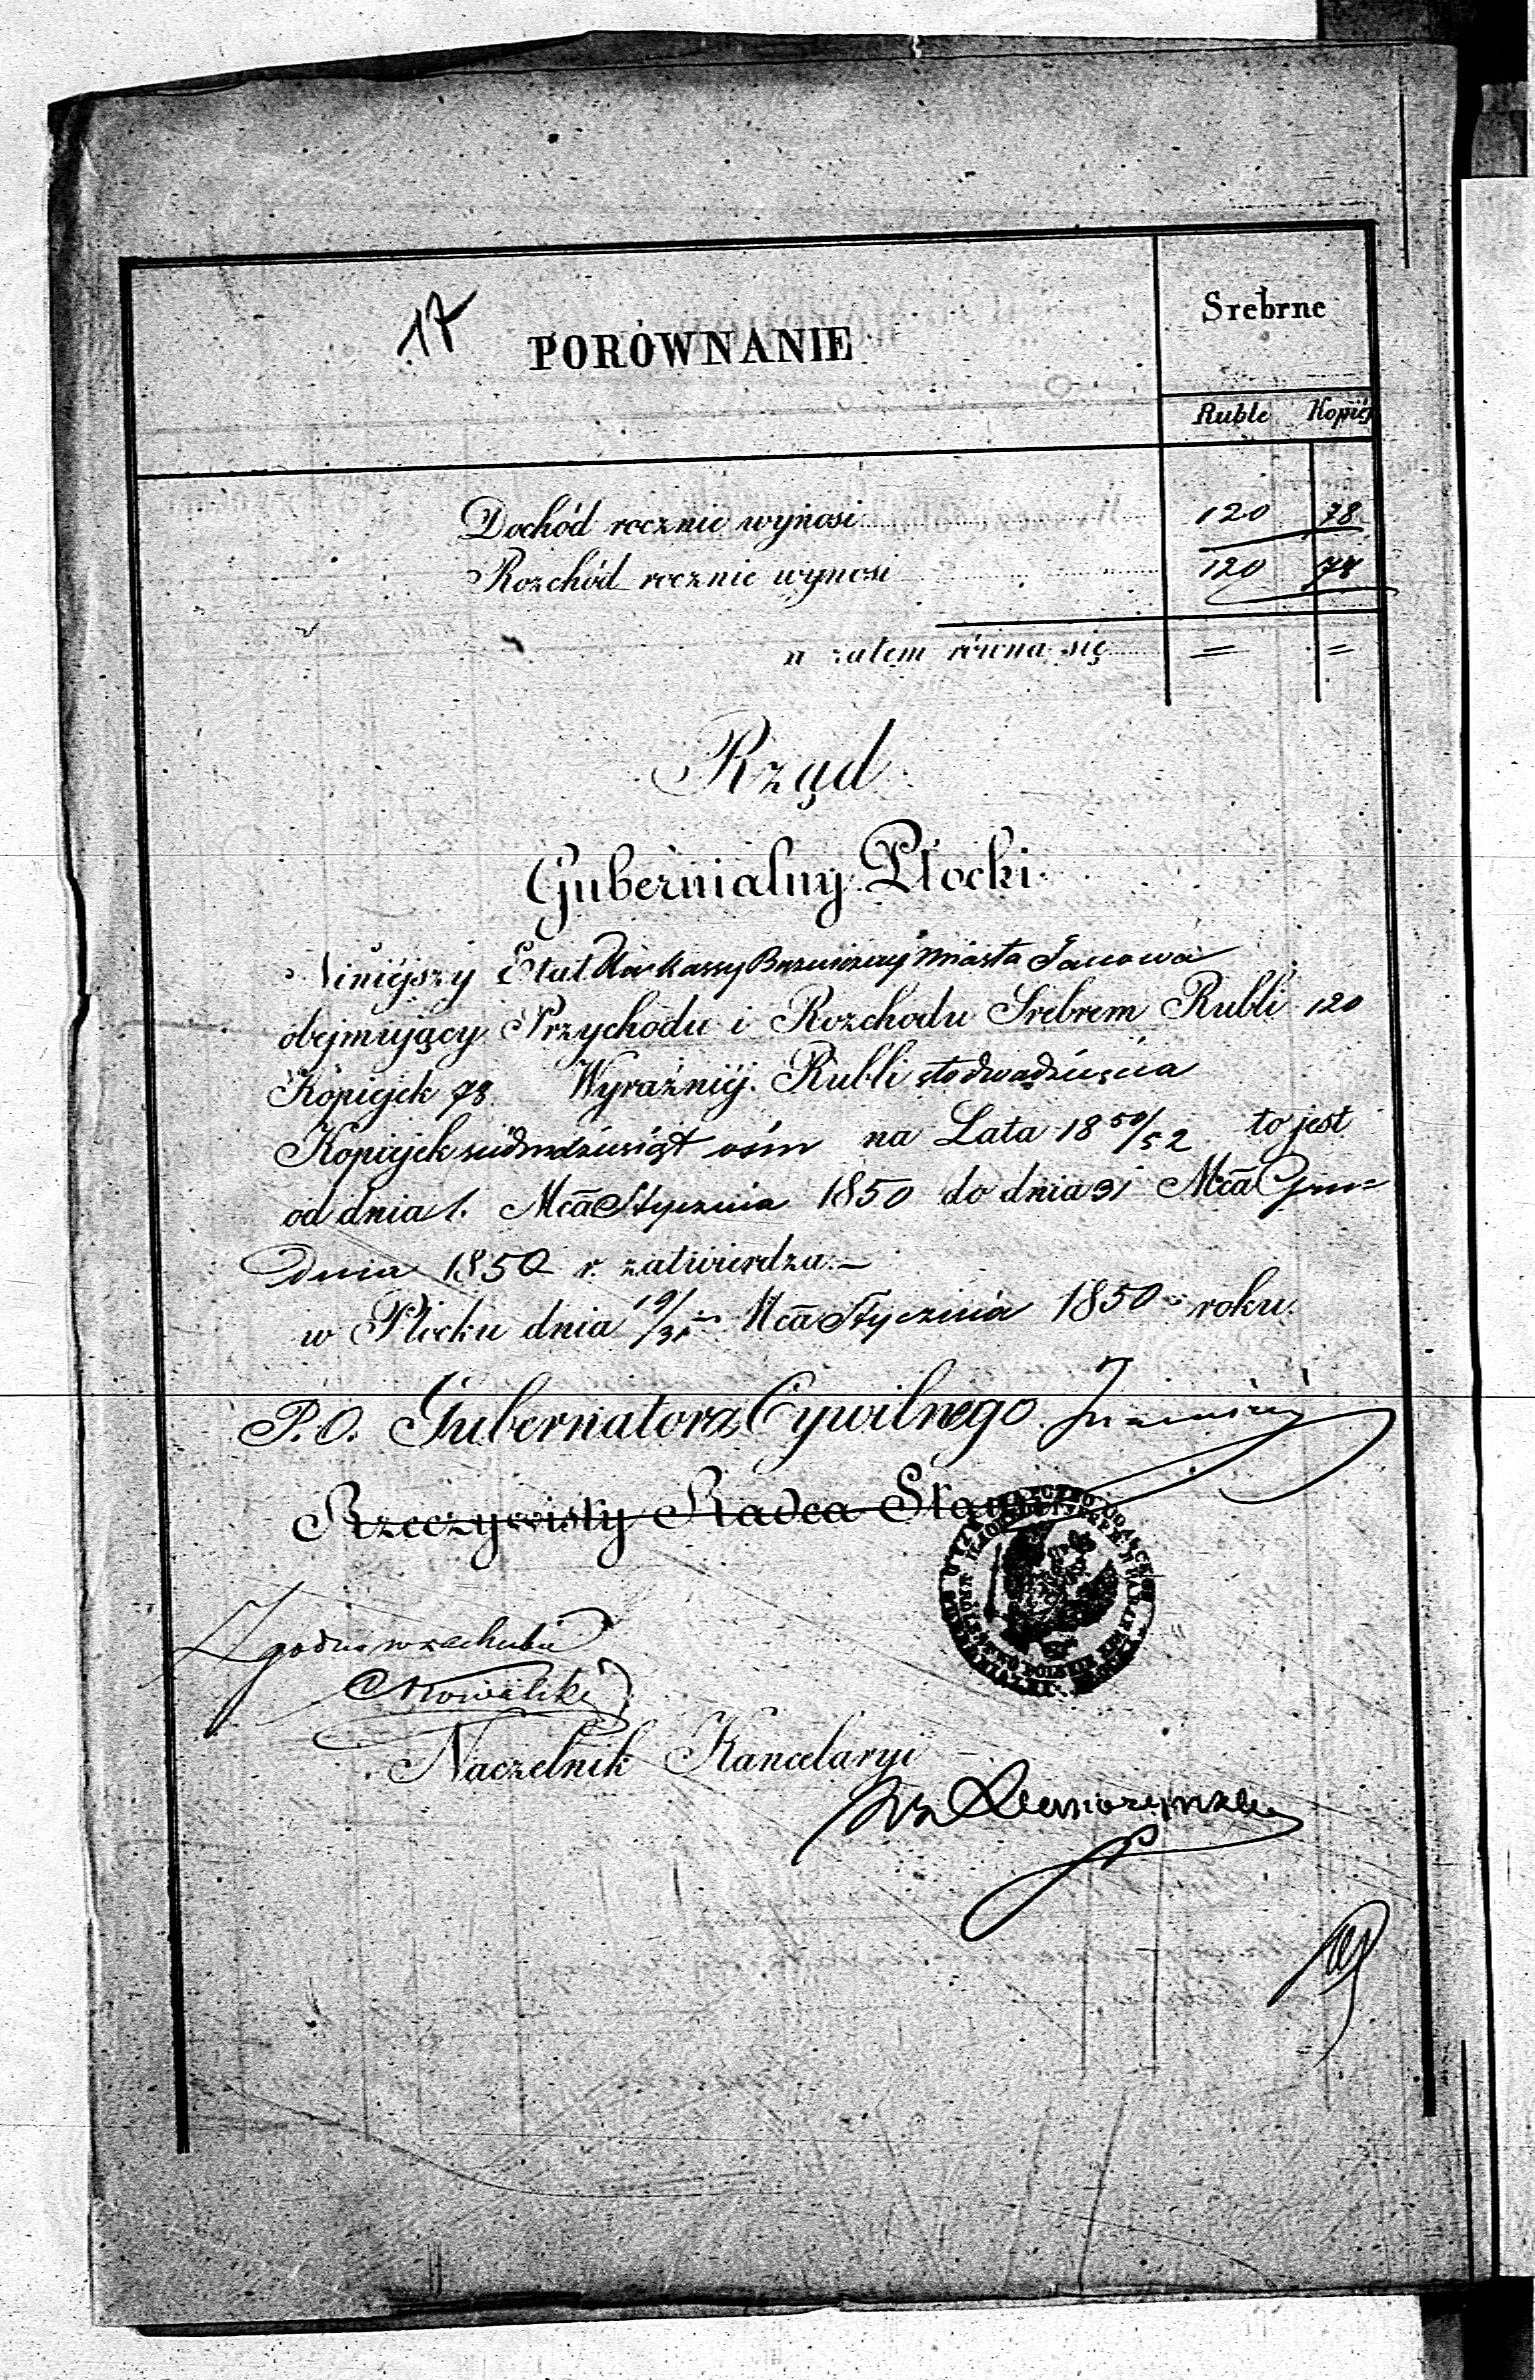 17
PORÓWNANIE
Srebrne
Ruble Kopiéj
Dochód rocznie wynosi 120 78
Rozchód rocznie wynosi 120 78
a zatem równa się = =
Rząd
Gubernialny Płocki
Niniejszy Etat dla Kassy Bożniczej Miasta Janowa
obejmujący Przychodu i Rozchodu Srebrem Rubli 120
Kopiejek 78 Wyraźniéj Rubli stodwadzieścia
Kopiejek siedmdziesiąt ośm na Lata 1850/52 to jest
od dnia 1. Mca Stycznia 1850 do dnia 31 Mca Gru=
dnia 1852 r. zatwierdza.—
w Płocku dnia 19/31 Mca Stycznia 1850 roku.
P.O. Gubernatora Cywilnego
Rzeczywisty Radca Stanu
Zgodno w rachubie
Nowalski
Naczelnik Kancelaryi